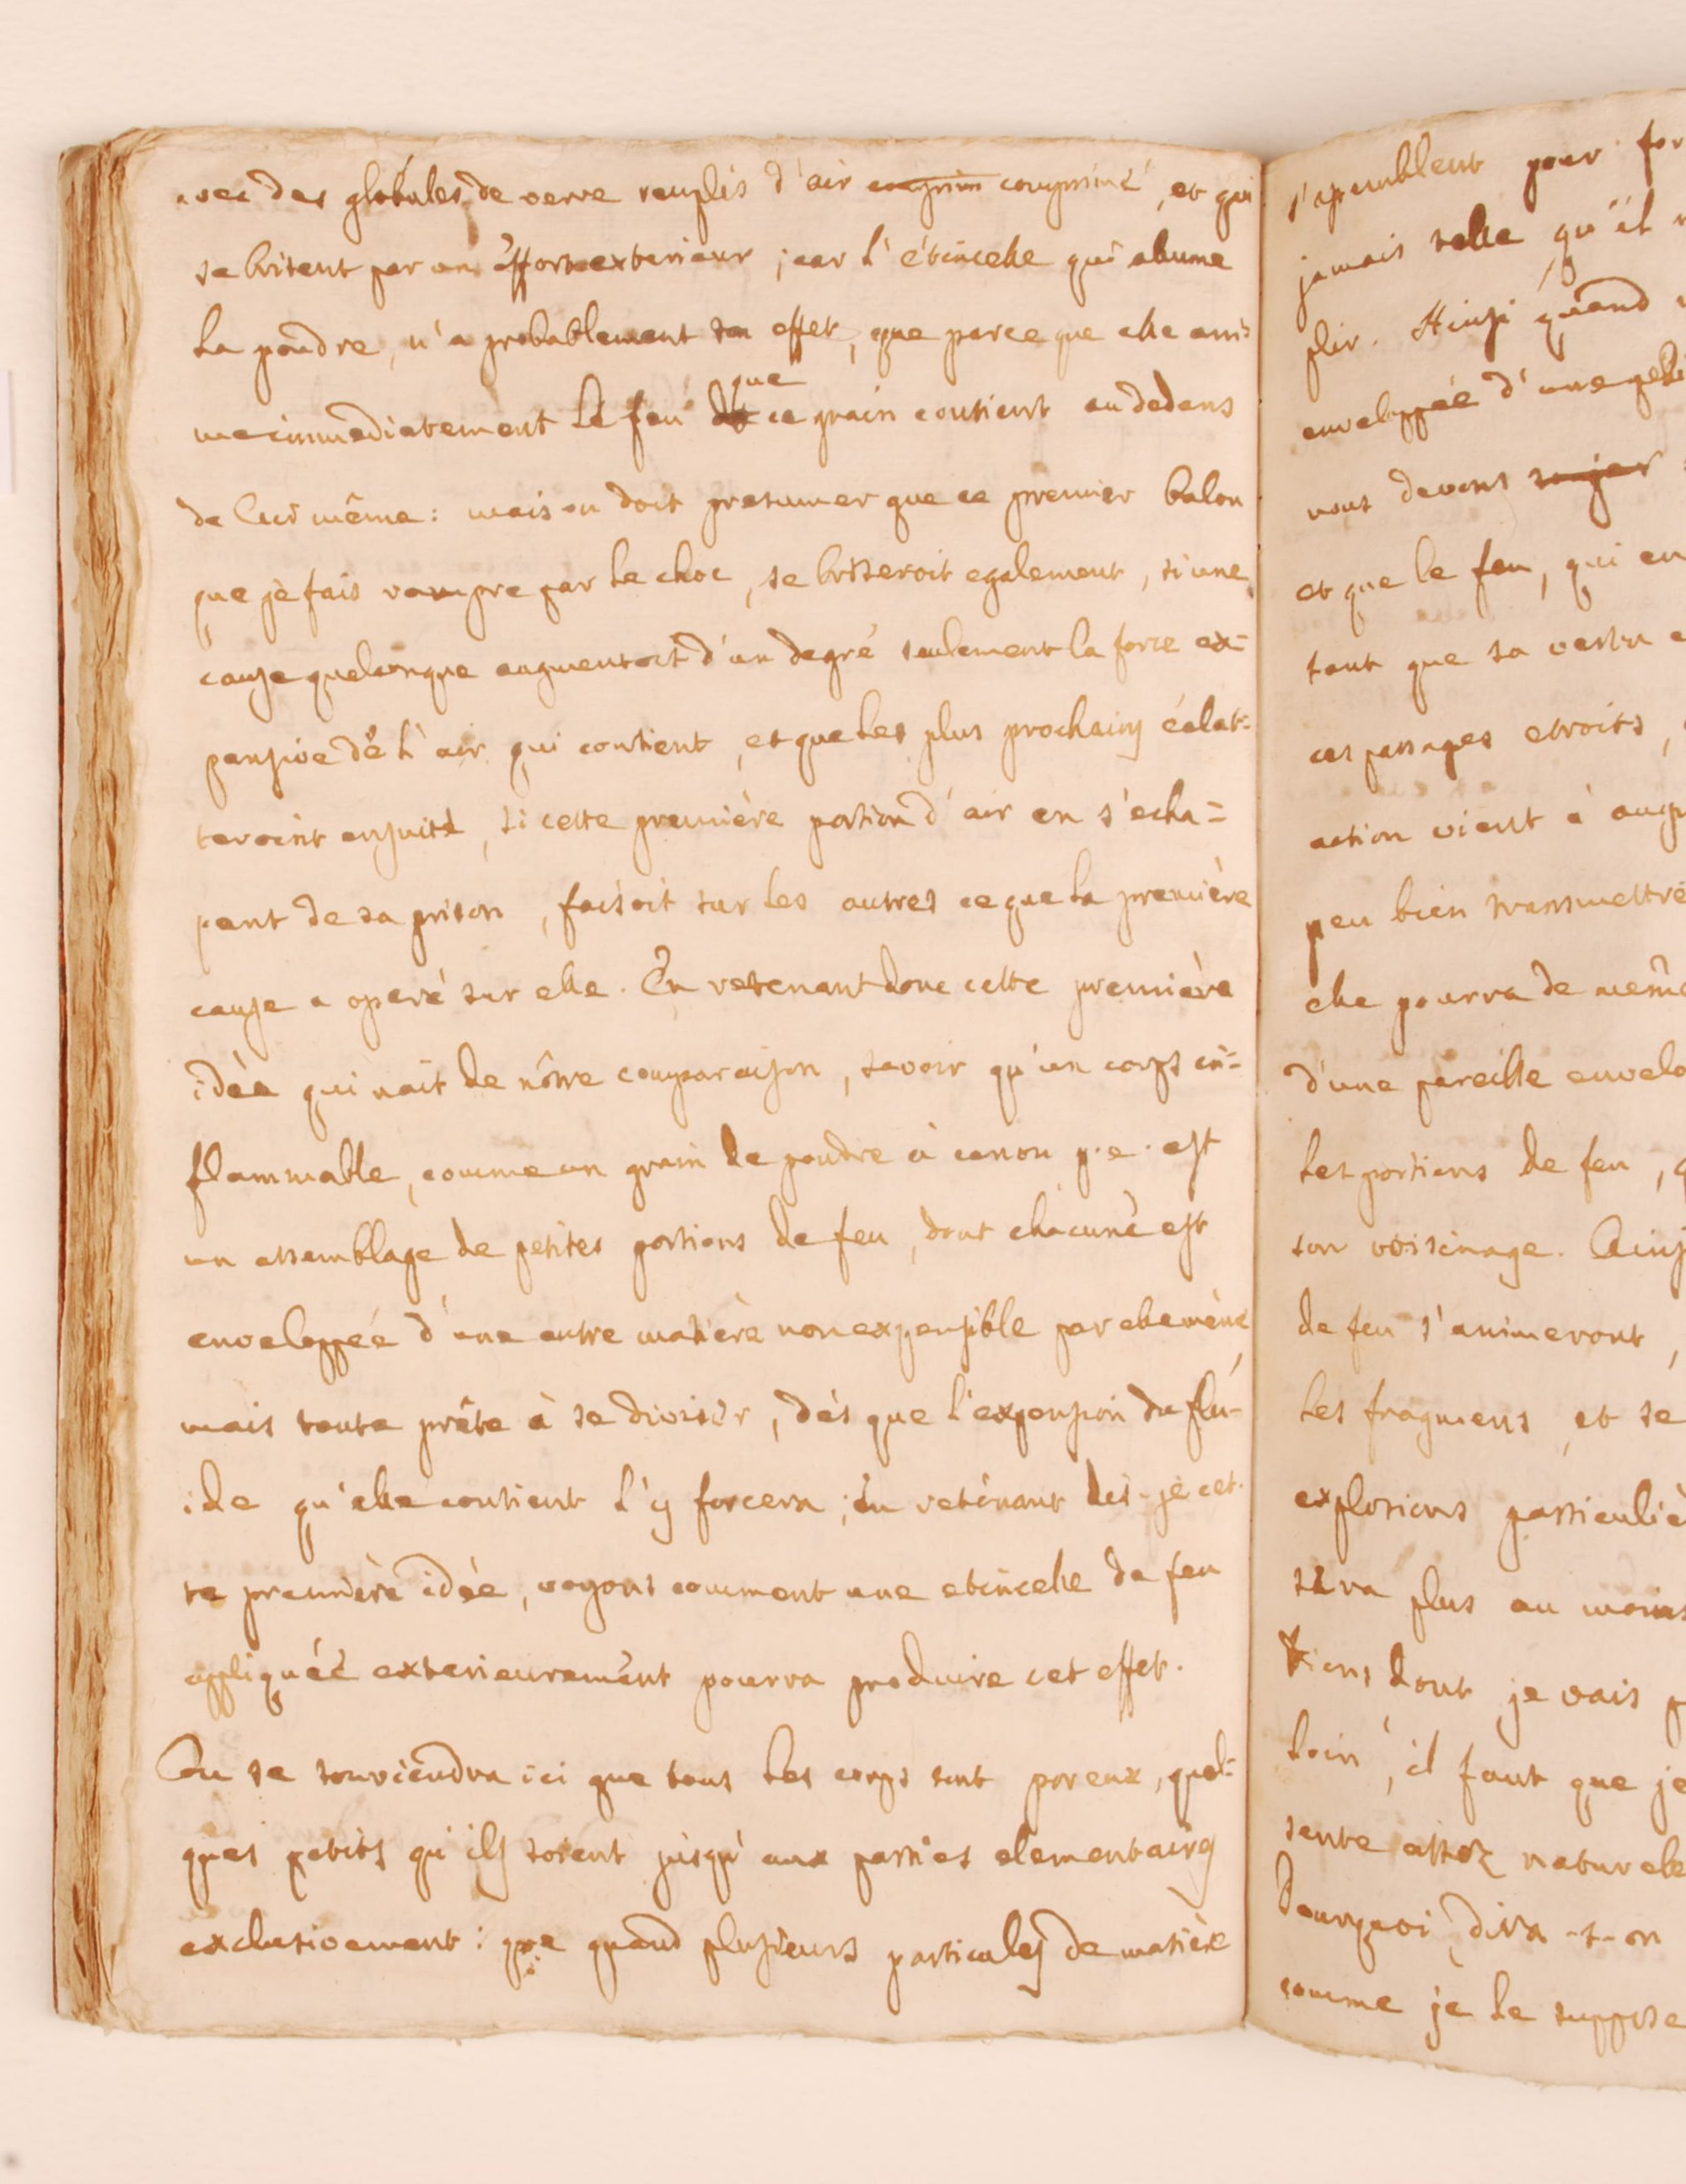 avec des globules de verre remplis d'air comprim comprimé, et qui
se brisent par un effort exterieur ; car l'étincelle qui alume
la poudre, n'a probablement son effet, que parce que elle ani=
me immediatement le feu que ce grain contient au dedans
de lui même : mais on doit presumer que ce premier balon
que je fais rompre par le choc, se briseroit egalement, si une
cause quelconque augmentoit d'un degré seulement la force ex=
pansive de l'air qui contient, et que les plus prochains éclat=
teroint ensuite, si cette première portion d'air en s'echa=
pant de sa prison, faisoit sur les autres ce que la première
cause a operé sur elle. En retenant donc cette première
idée qui nait de nôtre comparaison, savoir qu'un corps in=
flammable, comme un grain de poudre à canon p.e. est
un assemblage de petites portions de feu, dont chacune est
enveloppée d'une autre matière non expansible par elle même,
mais toute prête à se diviser, dés que l'expansion du flu-
ide qu'elle contient l'y forcera ; En retenant dis-je cet-
te première idée, voyons comment une etincelle de feu
appliquée exterieurement pourra produire cet effet.
On se souviendra ici que tous les corps sont poreux, quel=
ques petits qu'ils soient jusqu'aux parties elementairs
exclusivement : que quand plusieurs particules de matière
s'assemblent pour for
jamais telle qu'il
plir. Ainsi quand
enveloppée d'une
nous devons songer
et que le feu, qui en
tant que sa vertu
ces passages etroits,
action vient à aug
peu bien transmettre
elle pourra de même
d'une pareille envelo
les portions de feu,
son voisinage. Ains
de feu s'animeront,
les fragmens, et se
explosions particuliè
sera plus ou moins
tions, dont je vais
loin, il faut que je
sente assez naturele
Pourquoi, dira-t-on
comme je le suppose